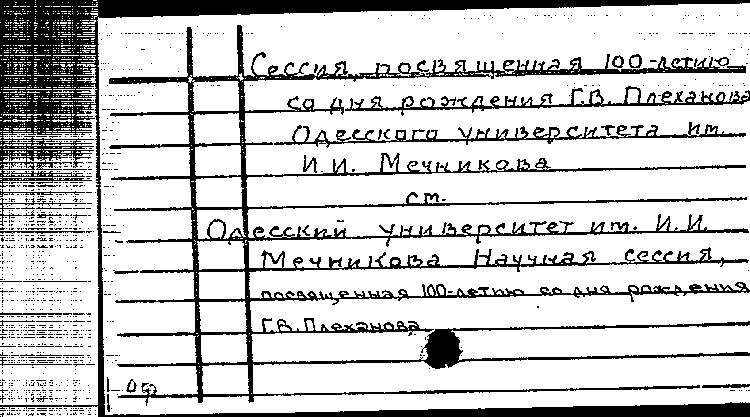 Сессия, посвященная 100-летию
со дня рождения Г.В. Плеханова
Одесского университета им.
И.И. Мечникова
см.
Одесский университет им. И.И.
Мечникова Научная сессия,
посвященная 100-летию со дня рождения
Г.В. Плеханова
оф